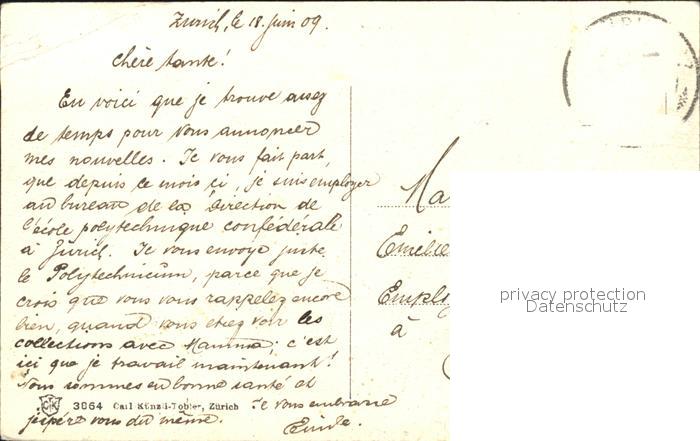 Zurich, le 18. juin 09.
Chère tante!
En voici que je trouve assez
de temps pour vous annoncer
mes nouvelles. Je vous fait part,
que depuis ce mois ci, je suis employer
au bureau de la Direction de
l'école polytechnique confédérale
à Zürich. Je vous envoye juste
le Polytechnicum, parce que je
crois que vous vous rappelez encore
bien, quand vous etiez voir les
collections avec Mamma; c'est
ici que je travail maintenant!
Nous sommes en bonne santé et
j'espére vous du même. Je vous embrasse
Emile.
3864 Carl Künzli-Tobler, Zürich
Ma
Emilie
Employ
à
privacy protection
Datenschutz